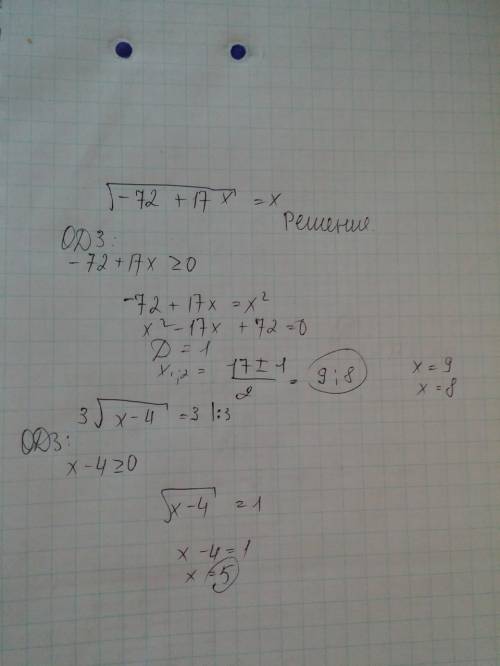 √(-72 + 17x) = x
Решение
ОДЗ:
-72 + 17x ≥ 0
-72 + 17x = x²
x² - 17x + 72 = 0
D = 1
x₁;₂ = (17 ± 1)/2 = 9 ; 8
x = 9
x = 8
3√(x - 4) = 3 |:3
ОДЗ:
x - 4 ≥ 0
√(x - 4) = 1
x - 4 = 1
x = 5